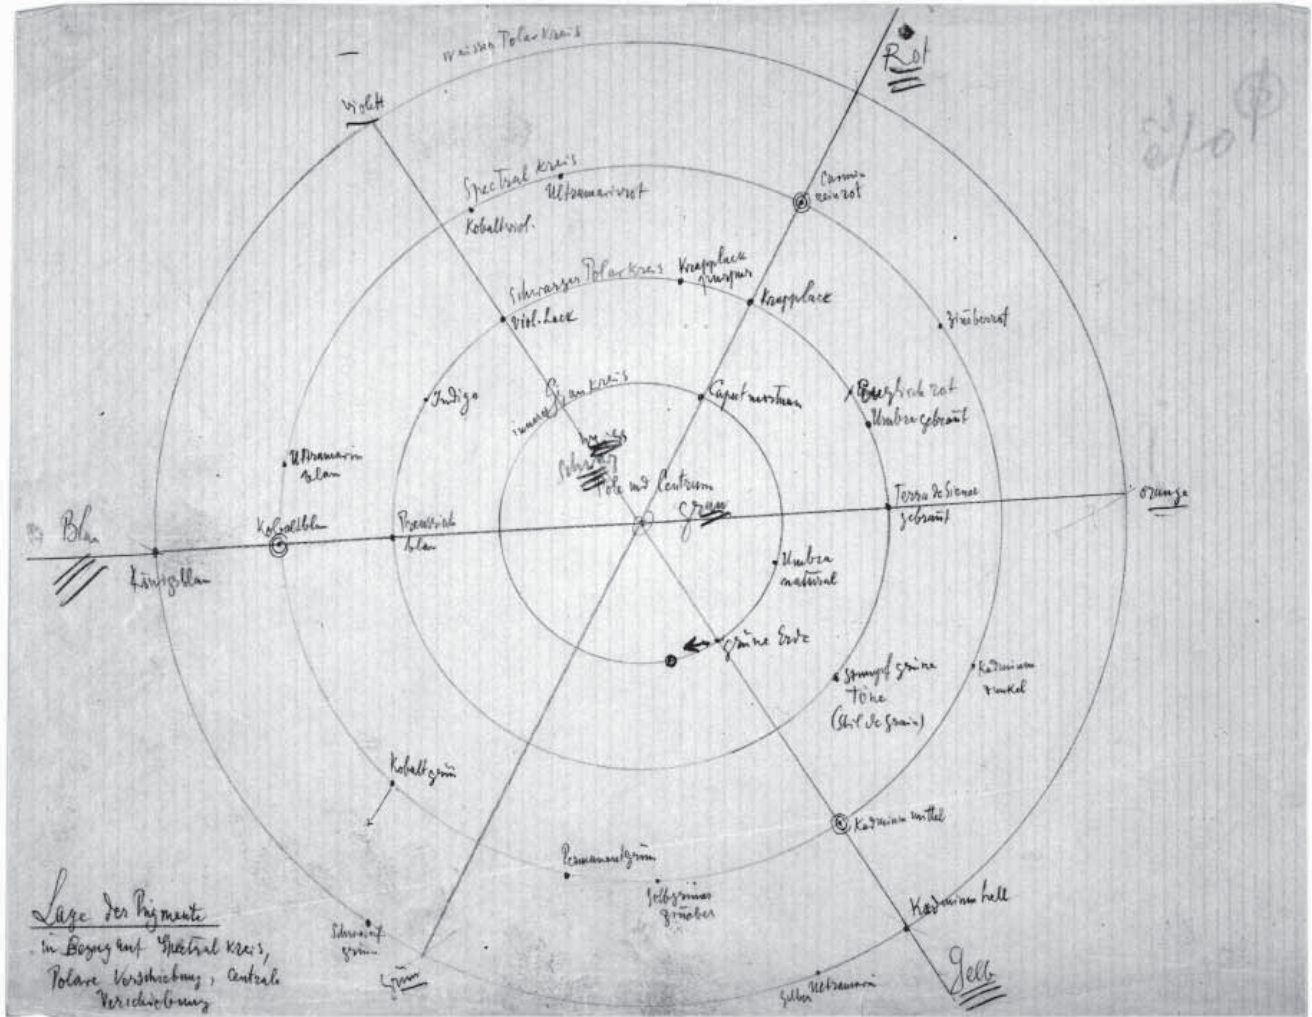 weisser Polarkreis
Rot
violett
Spectral Kreis
Ultramarinrot
Kobaltviol.
Carmin
reinrot
Schwarzer Polarkreis
Krapplack
purpur
Krapplack
viol. Lack
Zinoberrot
Indigo
innerer Graukreis
Caput mortuum
Englischrot
Umbra gebrannt
weiss
Schwarz
Pole und Centrum
grau
Ultramarin
blau
Terra de Siena
gebrannt
orange
Blau
Kobaltblau
Preussisch
blau
Königsblau
Umbra
natural
grüne Erde
Stumpf grüne
Töne
(Stil de grain)
Kadmium
dunkel
Kobaltgrün
Kadmium mittel
Permanentgrün
Kadmium hell
Schweinf
grün
grün
gelbes Ultramarin
Gelb
Lage der Pigmente
in Bezug auf Spectralkreis,
Polare Verschiebung, Centrale
Verschiebung